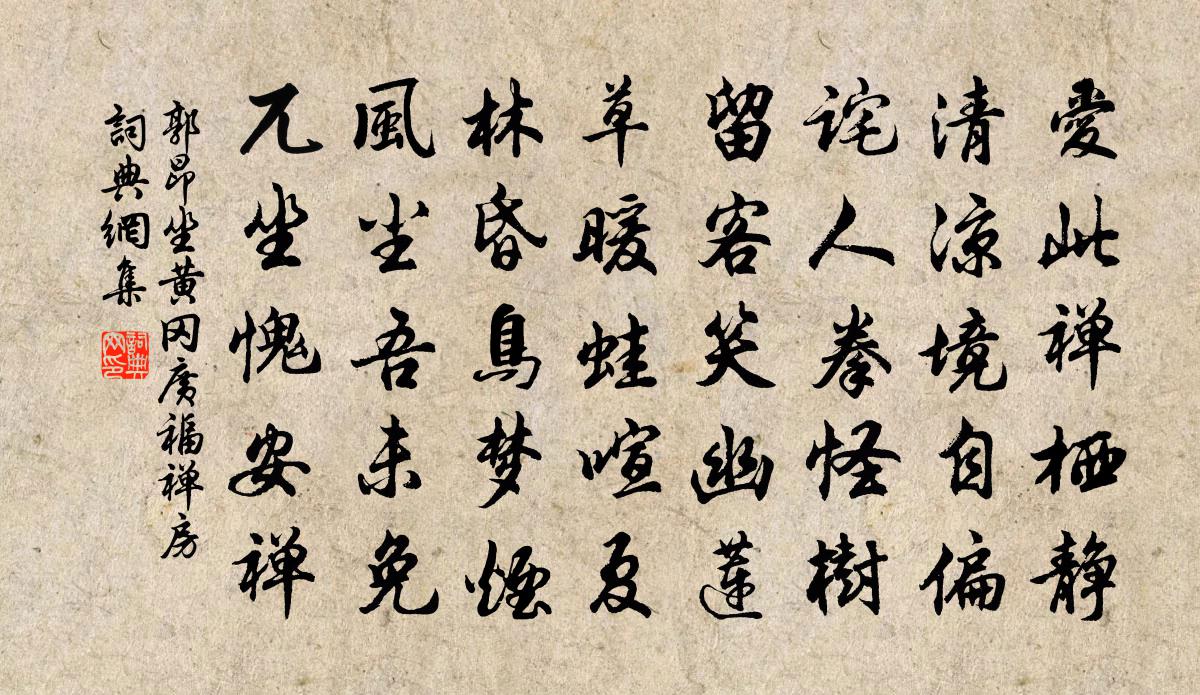 愛此禅栖静
清涼境自偏
诧人拳怪樹
留客笑幽蓮
草暖蛙喧夏
林昏鳥梦煙
風尘吾未免
兀坐愧安禅
郭昂坐黄冈廣福禅房
詞典網集
詞典网印